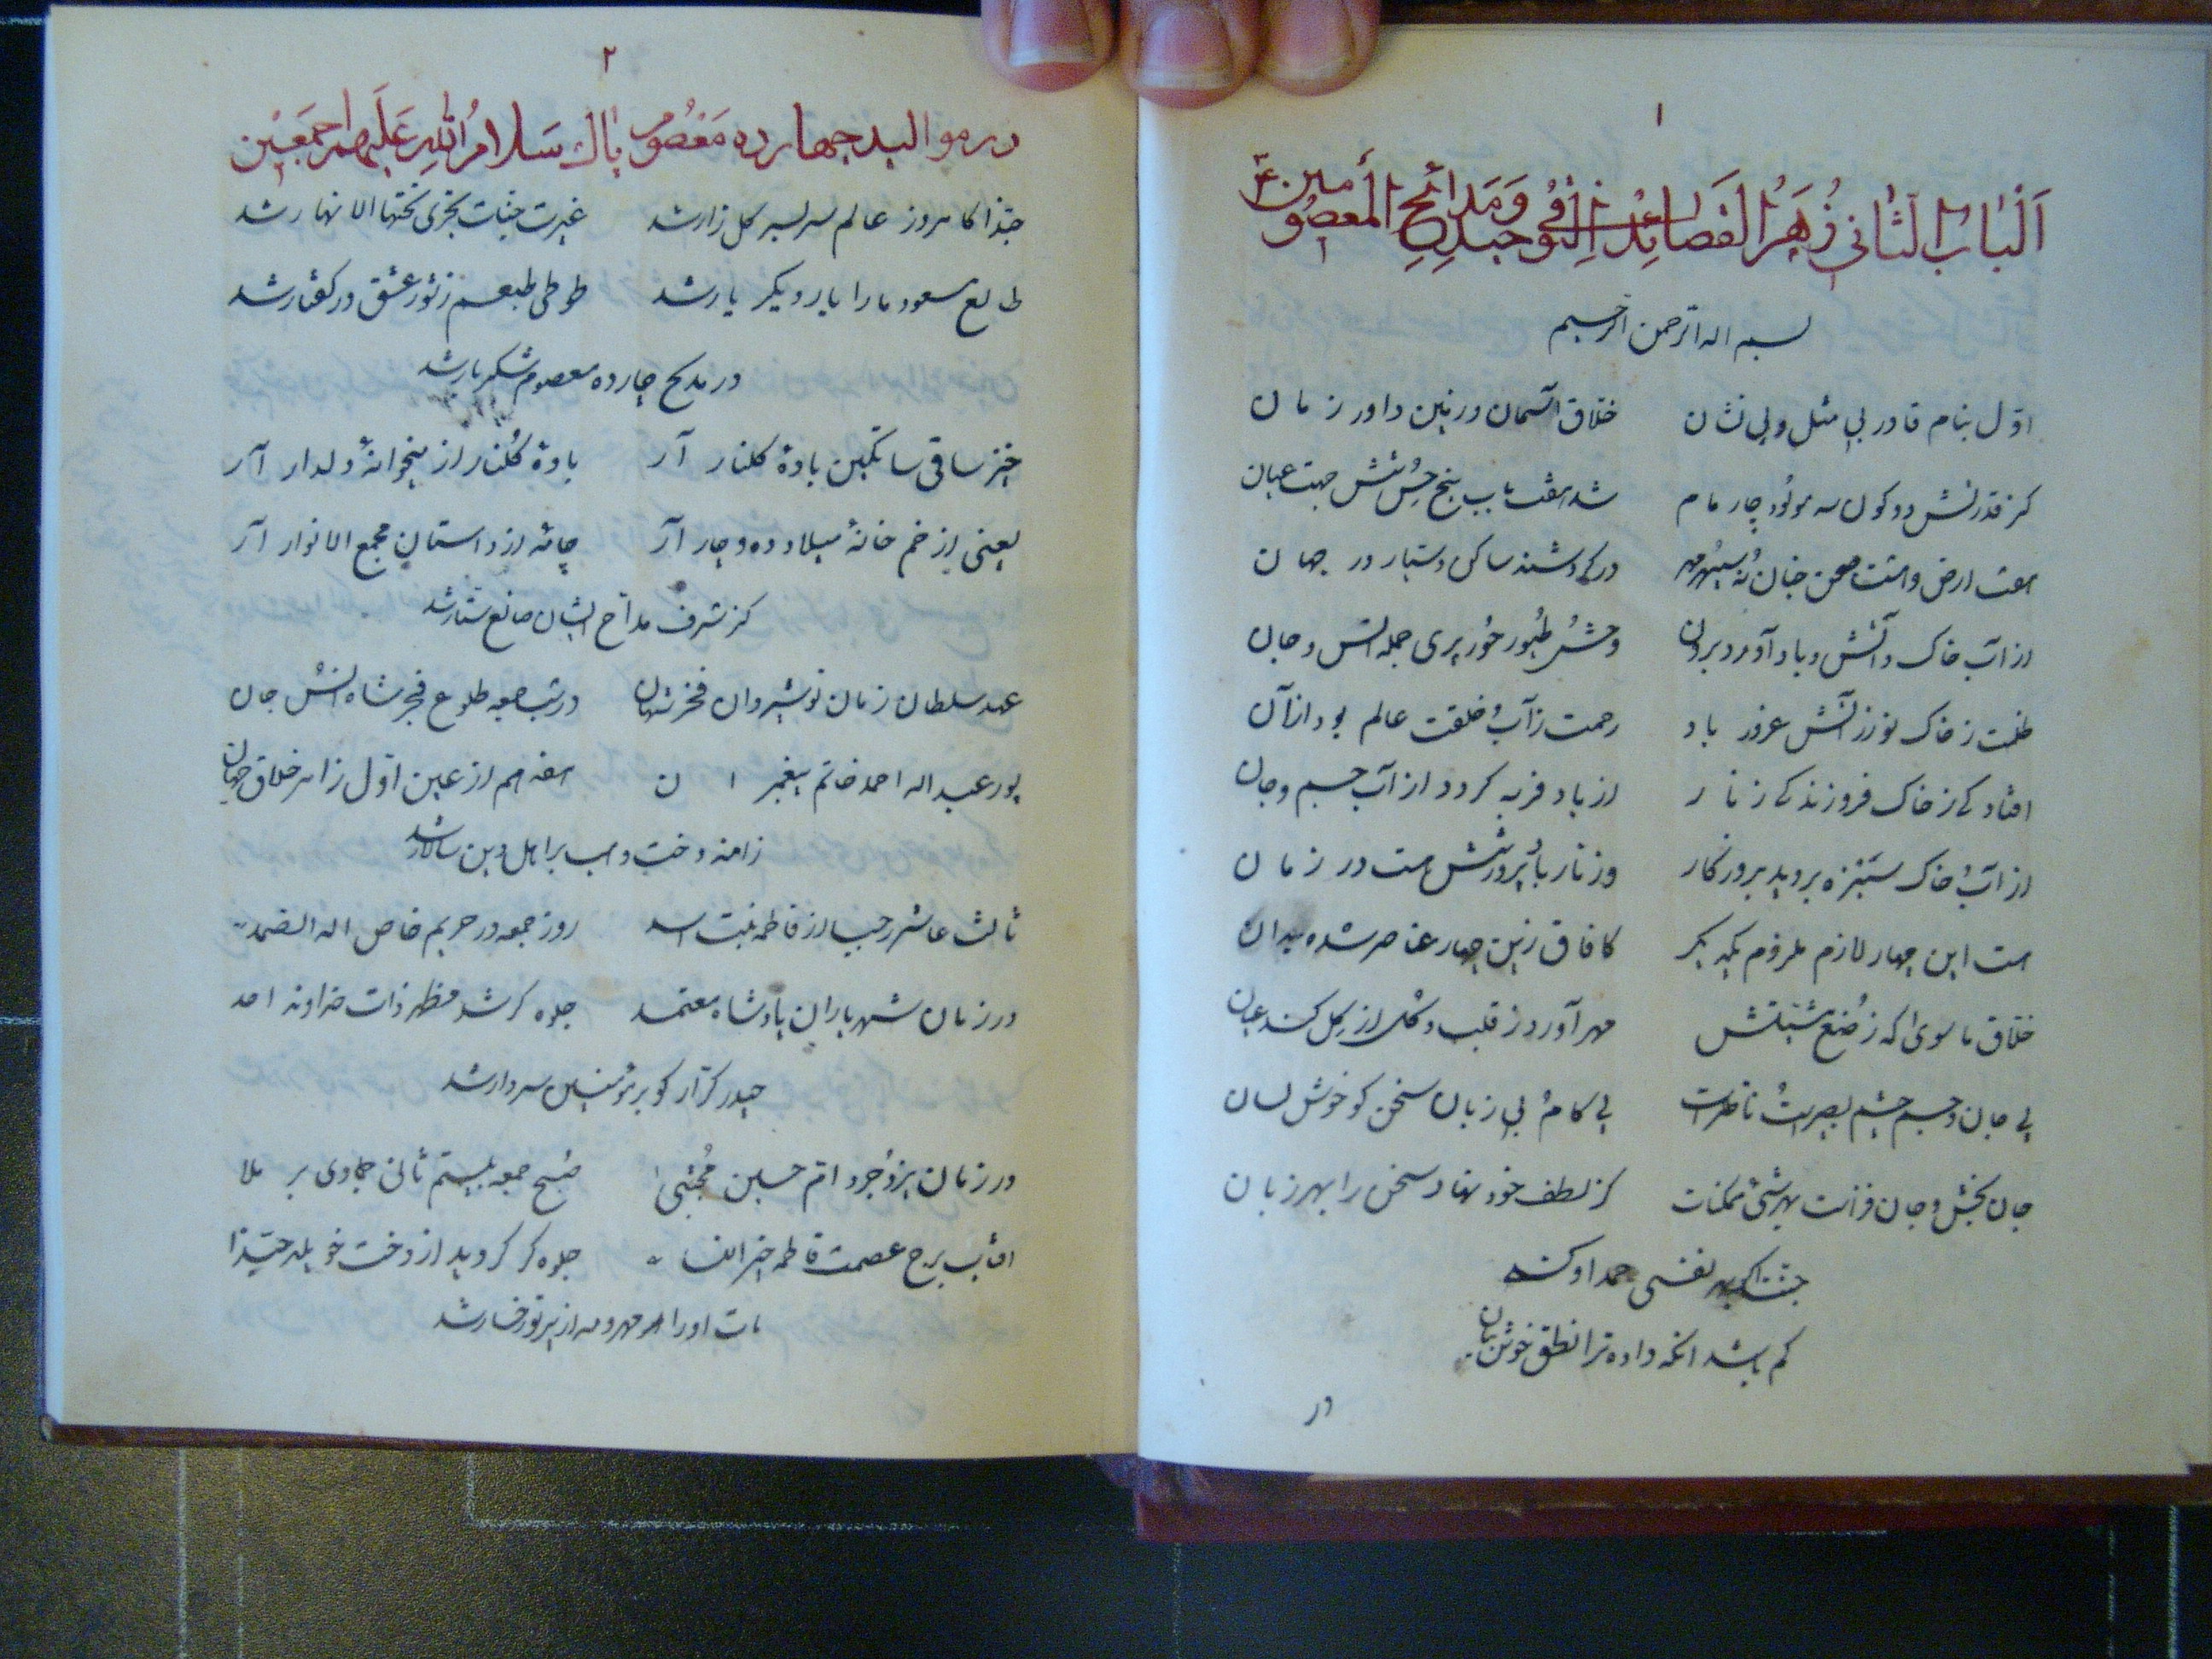 ۱
اَلْبابُ الثّانی زُهَرُ القَصائِدْ فِی التَّوْحیدِ وَ مَدائحِ المَعصُومین ع
بسم اله الرحمن الرحیم
اوّل بنام قادر بی مثل و بی نشان خلاق آسمان و زمین داور زمان
کز قدرتش دو کون سه مولود چار مام شد هفت باب پنج حس شش جهت عیان
هفت ارض و هشت صحن جنان نه سپهر مهر در کی شدند ساکن و سیّار در جهان
از آب خاک و آتش و باد آورد برون وحش طیور حور پری جمله انس و جان
ظلمت ز خاک نور ز آتش غرور باد رحمت ز آب خلقت عالم بود از آن
افتادکی ز خاک فروزندکی ز نار از باد فربه کردد از آب جسم و جان
از آب خاک سبزه بروید بروزکار وز نار باد پرورشش هست در زمان
هست این چهار لازم ملزوم یکدیکر کافاق زین چهار عناصر شده بدان
خلاق ماسوی که ز صنع مهر آورد ز قلب و کل از کل کند عیان
بی جان و جسم چشم بصیرت ناظرست بی کام بی زبان سخن کو خوش لسان
جان بخش و جان فزاست بهر شیئ ممکنات کز لطف خود نهاد سخن را بهر زبان
نفسی حمد او کند
کم باشد انکه داده ترا نطق خوش بیان
در
۲
در موالید چهارده مَعْصُوم پاک سَلامُ اللهِ عَلَیهِم اَجمَعین
حبّذا کامروز عالم سربسر کل زار شد غیرت جنّات تجری تحتها الانهار شد
طالع مسعود ما را یار دیکر یار شد طوطی طبعم ز شور عشق در کفتار شد
در مدیح چارده معصوم شکر بار شد
خیز ساقی ساتکین بادهٔ کلنار آر بادهٔ کلنار از میخوانهٔ دلدار آر
یعنی از خم خانهٔ میلاد ده و چار آر چامه از داستان مجمع الانوار آر
کز شرف مدّاح ایشان صانع ستّار شد
عهد سلطان زمان نوشیروان فخر شهان در شب جمعه طلوع فجر شاه انس جان
پور عبد اله احمد خاتم پیغمبران هفدهم از عین اوّل ز امر خلاق جهان
ز آمنه دخت وهب بر اهل دین سالار شد
ثالث عاشر رجب از فاطمه بنت اسد روز جمعه در حریم خاص اله الصمد
در زمان شهریاران پادشاه معتمد جلوه کر شد مظهر ذات خداوند احد
حیدر کرّار کو بر مؤمنین سردار شد
در زمان یزدجرد امّ حسین مجتبی صبح جمعه بیستم ثانی جمادی بر ملا
افتاب برج عصمت فاطمه خیر النسا جلوه کر کردید از دخت خویلد حبّذا
مات او را مهر و مه از پرتو رخسار شد